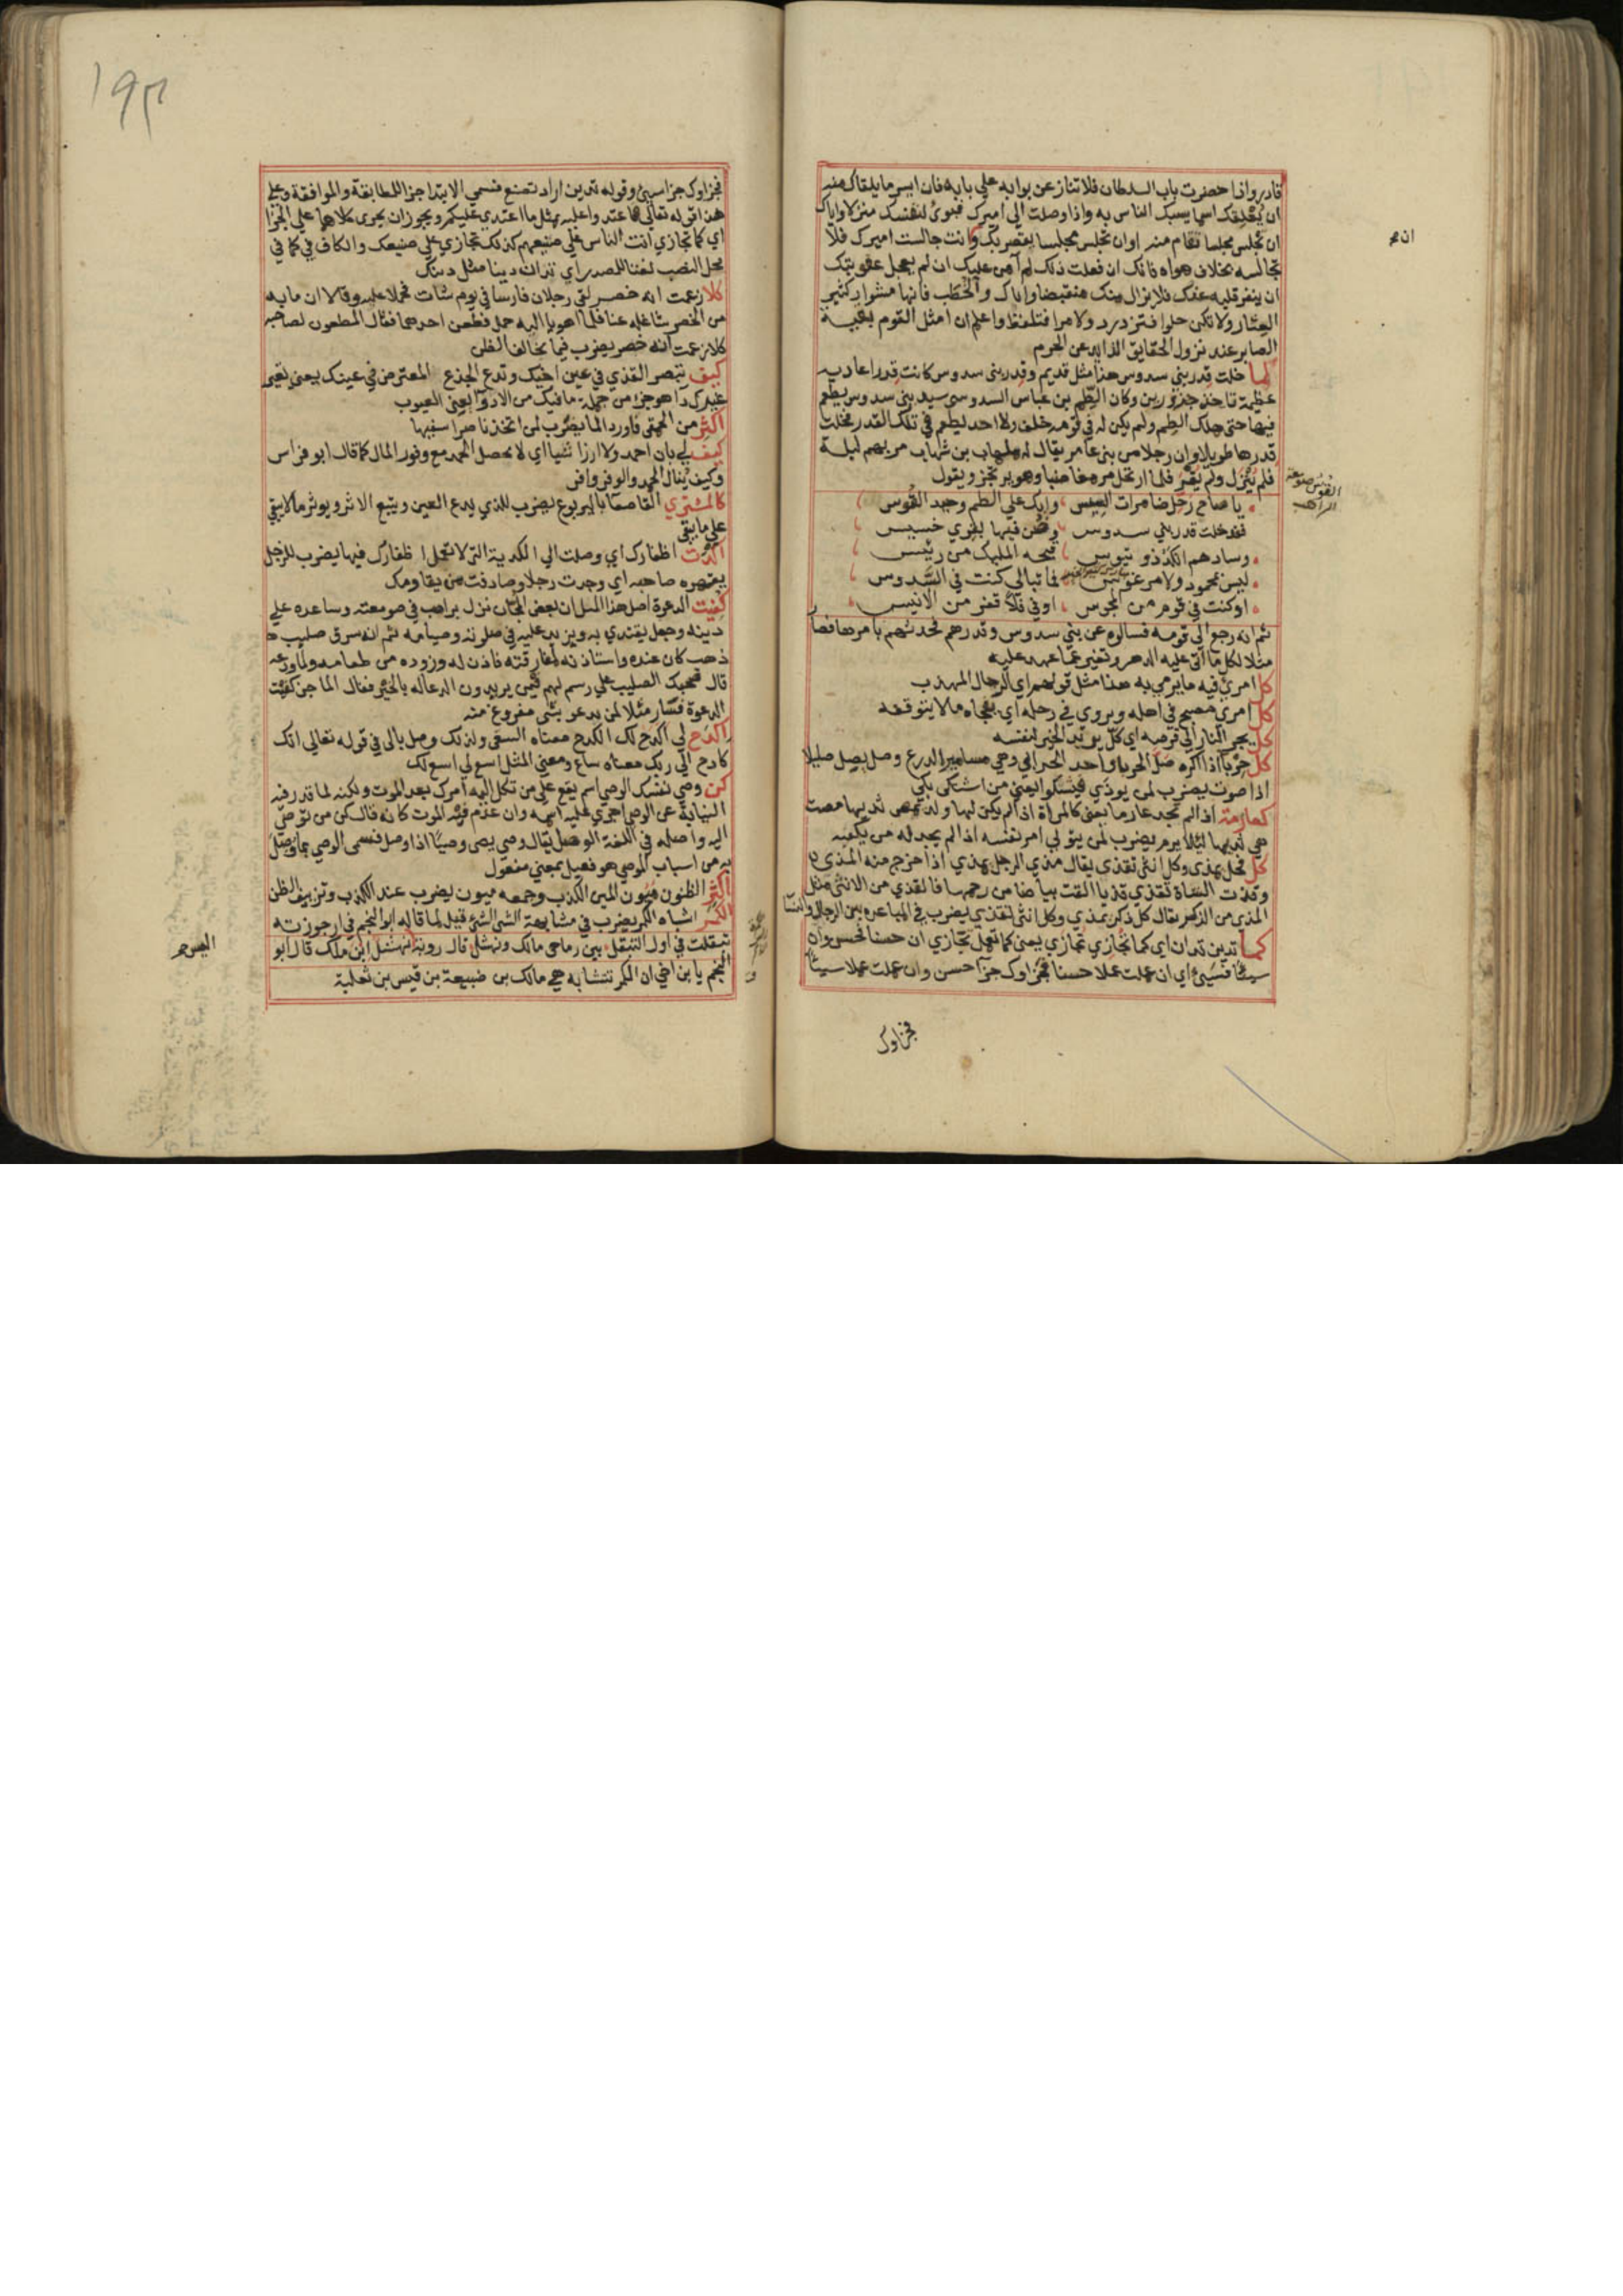 قادر واذا حضرت باب السلطان فلا تنازعن بوابه علي بابه فان ايسر ما يلقاك منه
ان يعلقك اسما يسبك الناس به واذا وصلت الي اميرك فبوئ لنفسك منزلا واياك
ان تجلس مجلسا تقام منه او ان تجلس مجلسا يقصر بك وانت جالست اميرك فلا
تجالسه بخلاف هواه فانك ان فعلت ذلك لم آمن عليك ان لم يعجل عقوبتك
ان ينفر قلبه عنك فلا يزال منك منقبضا واياك والخطب فانها مشوار كثير
العثار ولا تكن حلوا فتزدرد ولا مرا فتلفظ واعلم ان امثل القوم بقية
الصابر عند نزول الحقايق الذابد عن الحرم
كما خلت قدر بني سدوس هذا مثل قديم وقدر بني سدوس كانت قدرا عادية
عظيمة تاخذ جزورين وكان الطم بن عباس السدوسي سيد بني سدوس يطعم
فيها حتى هلك الطم ولم يكن له في قومه خلف ولا احد يطعم في تلك القدر فخلت
قدرها طويلا وان رجلا من بني عامر يقال له ملهاب بن شهاب مر بهم ليلة
فلم ينزل ولم يقر فلما ارتحل مر مغاضبا وهو يرتجز ويقول
يا صاح رحل ضامرات العيس وابك على الطم وحبر القوس
فقد خلت قدر بني سدوس وضن فيها بقري خسيس
وسادهم الكز ذو تيوس قبحه المليك من رئيس
ليس بمحمود ولا مرغوس فما تبالي كنت في السدوس
او كنت في قوم من المجوس او في فلا قفر من الانيس
ثم انه رجع الي قومه فسالوه عن بني سدوس وقدرهم فحدثهم بامرها فصار
مثلا لكل ما اتى عليه الدهر وتغير عما عهد عليه
كل امرئ فيه ما يرمي به هذا مثل قولهم اي الرجال المهذب
كل امرئ مصبح في اهله ويروي في رحله اي يفجاه ما لا يتوقعه
كل يجر النار الي قرصه اي كل يريد الخير لنفسه
كل حرباء اذا اكره صل الحربا واحد الحرابي وهي مسامير الدرع وصل يصل صليلا
اذا صوت يضرب لمن يوذي فيشكو ايعني من اشتكى بكي
كعارمة اذ لم تجد عارما يعني كالمراة اذا لم يكن لها ولد يمص ثديها مصت
هي ثديها ليلا يرم يضرب لمن يتولي امر نفسه اذا لم يجد له من يكفيه
كل فحل يمذي وكل انثى تقذي يقال مذي الرجل يمذي اذا خرج منه المذي
وقذت الشاة تقذي قذيا القت بياضا من رحمها فالقذي من الانثى مثل
المذي من الذكر يقال كل ذكر يمذي وكل انثى تقذي يضرب في المباعدة بين الرجال والنسا
كما تدين تدان اي كما تجازي تجازي يعني كما تعمل تجازي ان حسنا فحسن وان
سيئا فسيئ اي ان عملت عملا حسنا فجزاوك جزا حسن وان عملت عملا سيئا
فجزاوك
القوس صومعة
الراهب
١٩٣
فجزاوك جزا سيئ وقوله تدين اراد تصنع فسمي الابتدا جزا للمطابقة والموافقة وعلي
هذا قوله تعالي فاعتدوا عليه بمثل ما اعتدي عليكم ويجوز ان يجري كلاهما علي الجزا
اي كما تجازي انت الناس علي صنيعهم كذلك تجازي علي صنيعك والكاف في كما في
محل النصب نعتا للمصدر اي تدان دينا مثل دينك
كلا زعمت انه خصر لقي رجلان فارسا في يوم شات فحملا عليه وقالا ان ما به
من الخصر شاغله عنا فلما اهويا اليه حمل فطعن احدهما فقال المطعون لصاحبه
كلا زعمت انه خصر يضرب فيما يخالف الظن
كيف تبصر القذي في عين اخيك وتدع الجذع المعترض في عينك يعني تعير
غيرك داء هو جزء من جملة ما فيك من الادواء يعني العيوب
اكثر من الحمقى فاورد الما يضرب لمن اتخذ ناصرا سفيها
كيف لي بان احمد ولا ارزا شيئا اي لا يحصل الحمد مع وفور المال كما قال ابو فراس
وكيف ينال الحمد والوفر وافر
كالمشتري القاصعا باليربوع يضرب للذي يدع العين ويتبع الاثر ويوثر ما لا يبقى
على ما يبقى
اكدت اظفارك اي وصلت الي الكدية التي لا تعمل اظفارك فيها يضرب للرجل
يقهره صاحبه اي وجدت رجلا وصادفت من يقاومك
كفيت الدعوة اصل هذا المثل ان بعض المجان نزل براهب في صومعته وساعده علي
دينه وجعل يقتدي به ويزيد عليه في صلوته وصيامه ثم انه سرق صليب
ذهب كان عنده واستاذنه لمفارقته فاذن له وزوده من طعامه ولما ودعه
قال صحبك الصليب علي رسم لهم فيمن يريدون الدعا له بالخير فقال الماجن كفيت
الدعوة فصار مثلا لمن يدعو بشي مفروغ منه
اكدح لي اكدح لك الكدح معناه السعي ولذلك وصل بالى في قوله تعالي انك
كادح الي ربك معناه ساع ومعني المثل اسع لي اسع لك
كن وصي نفسك الوصي اسم يقع علي من تكل اليه امرك بعد الموت ولكنه لما قدر فيه
النيابة عن الوصي اجري عليه اسمه وان عدم فيه الموت كانه قال كن من توصي
اليه واصله في اللغة الوصل يقال وصي يصي وصيا اذا وصل فسمى الوصي بما وصل
به من اسباب الموصي هو فعيل بمعني مفعول
اكثر الظنون ميون المين الكذب وجمعه ميون يضرب عند الكذب وتزييف الظن
الكمر اشباه الكمر يضرب في مشابهة الشي الشئ قيل لما قاله ابو النجم في ارجوزته
تبقلت في اول التبقل بين رماحي مالك ونهشل قال روبة نهشل ابن ملك قال ابو
النجم يا بن اخي ان الكمر تتشابه هي مالك بن ضبيعة بن قيس بن ثعلبة